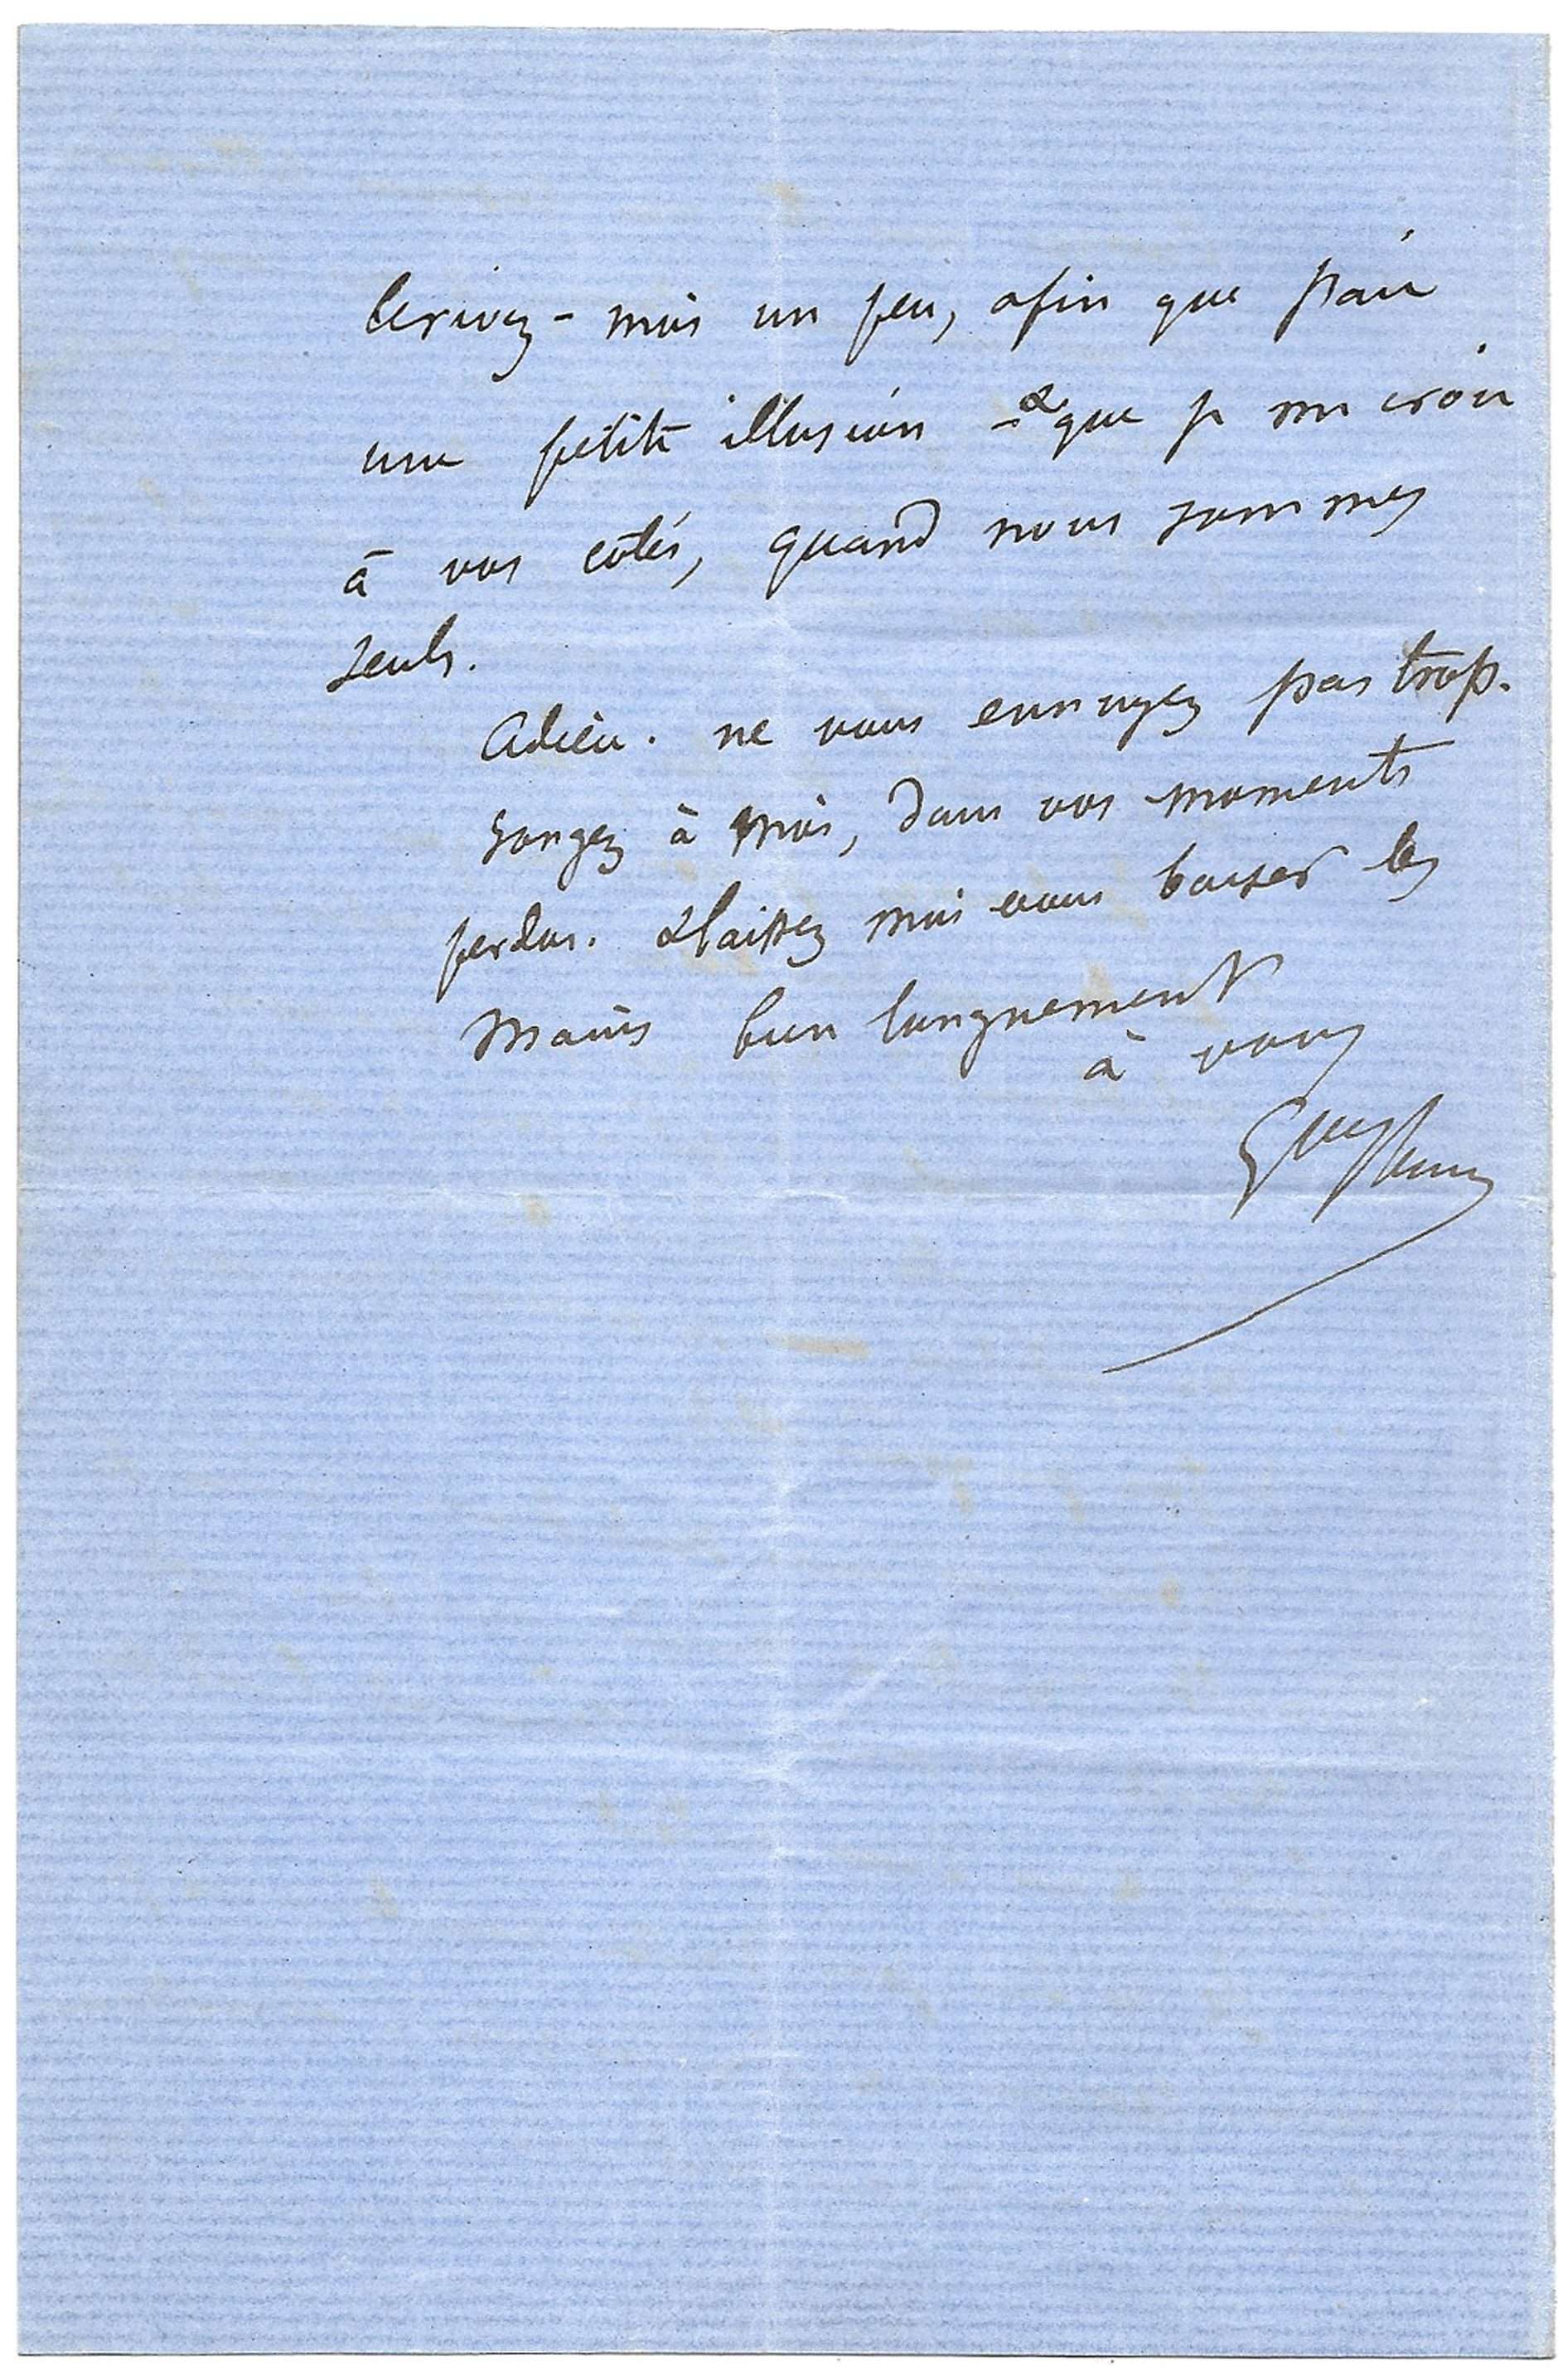 Ecrivez-moi un peu, afin que j'aie
une petite illusion - & que je me croie
à vos côtés, quand nous sommes
seuls.
Adieu. ne vous ennuyez pas trop.
songez à moi, dans vos moments
perdus. & laissez moi vous baiser les
mains bien longuement
à vous